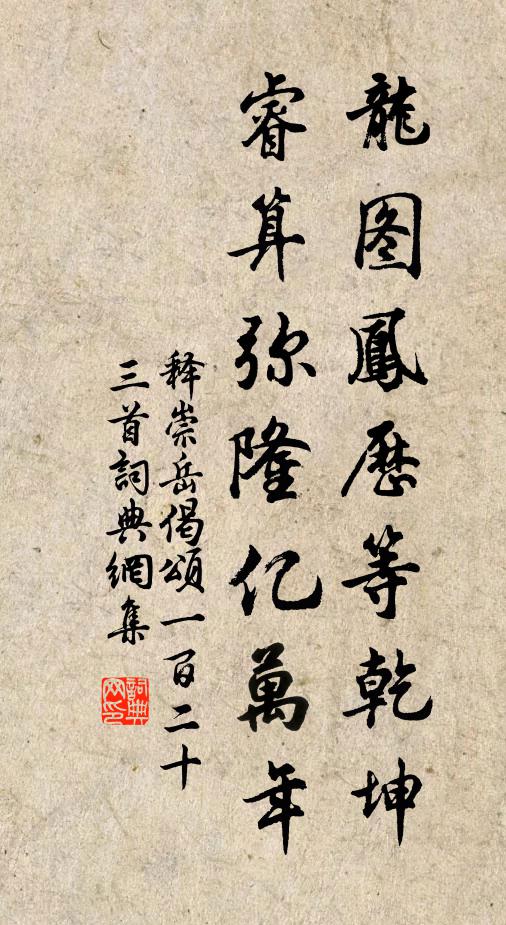 龍图鳳歷等乾坤
睿算弥隆亿萬年
释崇岳偈頌一百二十
三首詞典網集
詞典
网印